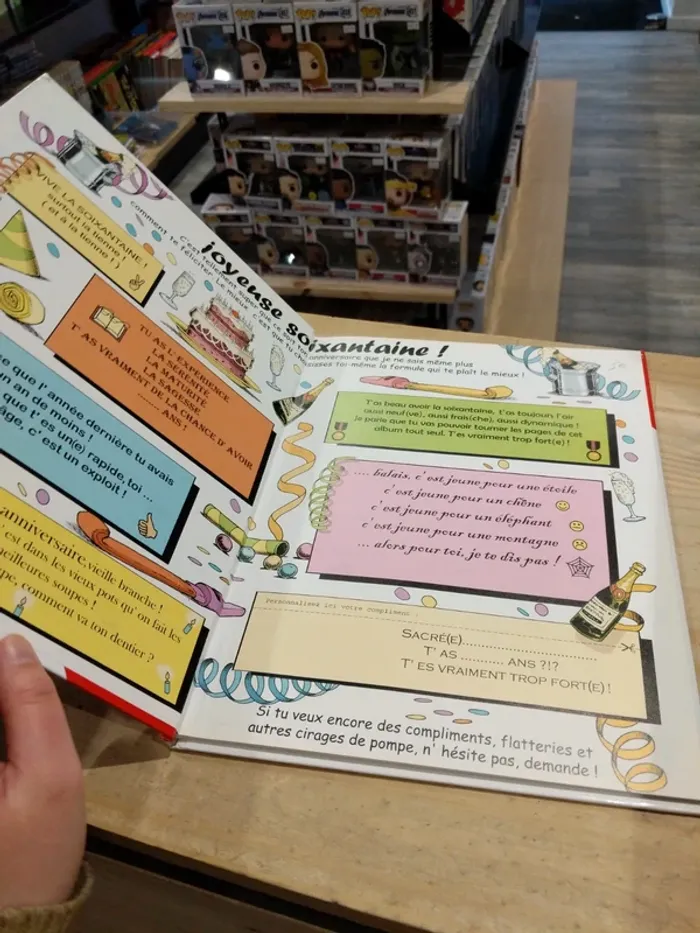 VIVE LA SOIXANTAINE !
surtout la tienne !
( et à la tienne ! )
joyeuse soixantaine !
C'est tellement super que ce soit ton anniversaire que je ne sais même plus
comment te féliciter. Le mieux, c'est que tu choisisses toi-même la formule qui te plaît le mieux !
TU AS L'EXPÉRIENCE
LA SÉRÉNITÉ
LA MATURITÉ
LA SAGESSE
T' AS VRAIMENT DE LA CHANCE D' AVOIR
......... ANS !
que l' année dernière tu avais
un an de moins !
que t' es un(e) rapide, toi ...
âge, c' est un exploit !
anniversaire, vieille branche !
c'est dans les vieux pots qu' on fait les
meilleures soupes !
comment va ton dentier ?
T'as beau avoir la soixantaine, t'as toujours l'air
aussi neuf(ve), aussi frais(che), aussi dynamique !
Je parie que tu vas pouvoir tourner les pages de cet
album tout seul. T'es vraiment trop fort(e) !
.... balais, c'est jeune pour une étoile
c'est jeune pour un chêne
c'est jeune pour un éléphant
c'est jeune pour une montagne
... alors pour toi, je te dis pas !
Personnalisez ici votre compliment :
SACRÉ(E)....................................
T' AS ............ ANS ?!?
T' ES VRAIMENT TROP FORT(E) !
Si tu veux encore des compliments, flatteries et
autres cirages de pompe, n' hésite pas, demande !